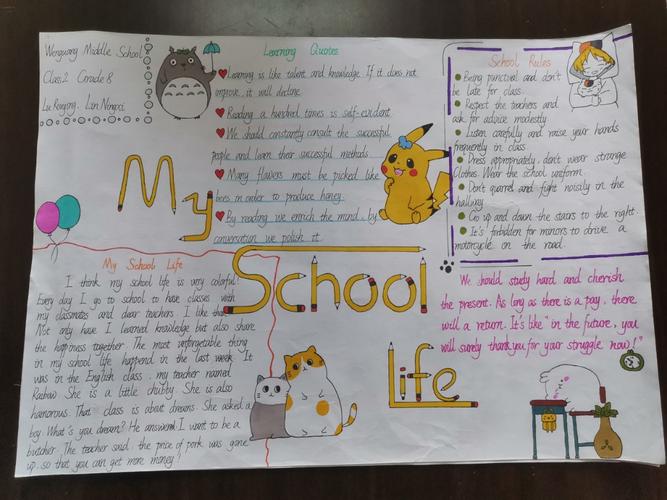 Wenguang Middle School
Class2 Grade 8
Lu Lin
Learning Quotes
Learning is like talent and knowledge. If it does not
improve, it will decline.
Reading a hundred times is self-evident.
We should constantly consult the successful
people and learn their successful methods
Many flowers must be picked like
bees in order to produce honey.
By reading we enrich the mind, by
conversation we polish it.
School Rules
Being punctual and don't
be late for class.
Respect the teachers and
ask for advice modestly
Listen carefully and raise your hands
frequently in class
Dress appropriately, don't wear strange
clothes. Wear the school uniform.
Don't quarrel and fight noisily in the
hallway
Go up and down the stairs to the right.
It's forbidden for minors to drive a
motorcycle on the road.
My
School
Life
My School Life
I think my school life is very colorful!
Every day I go to school to have classes with
my classmates and dear teachers. I like that.
Not only have I learned knowledge but also share
the happiness together. The most unforgetable thing
in my school life happend in the last week. It
was in the English class, my teacher named
She is a little chubby. She is also
humorous. That class is about dreams. She asked a
boy What's you dream? He answered I want to be a
butcher. The teacher said the price of pork was gone
up, so that you can get more money!
We should study hard and cherish
the present. As long as there is a pay, there
will a return. It's like "in the future, you
will surely thank you for your struggle now!"